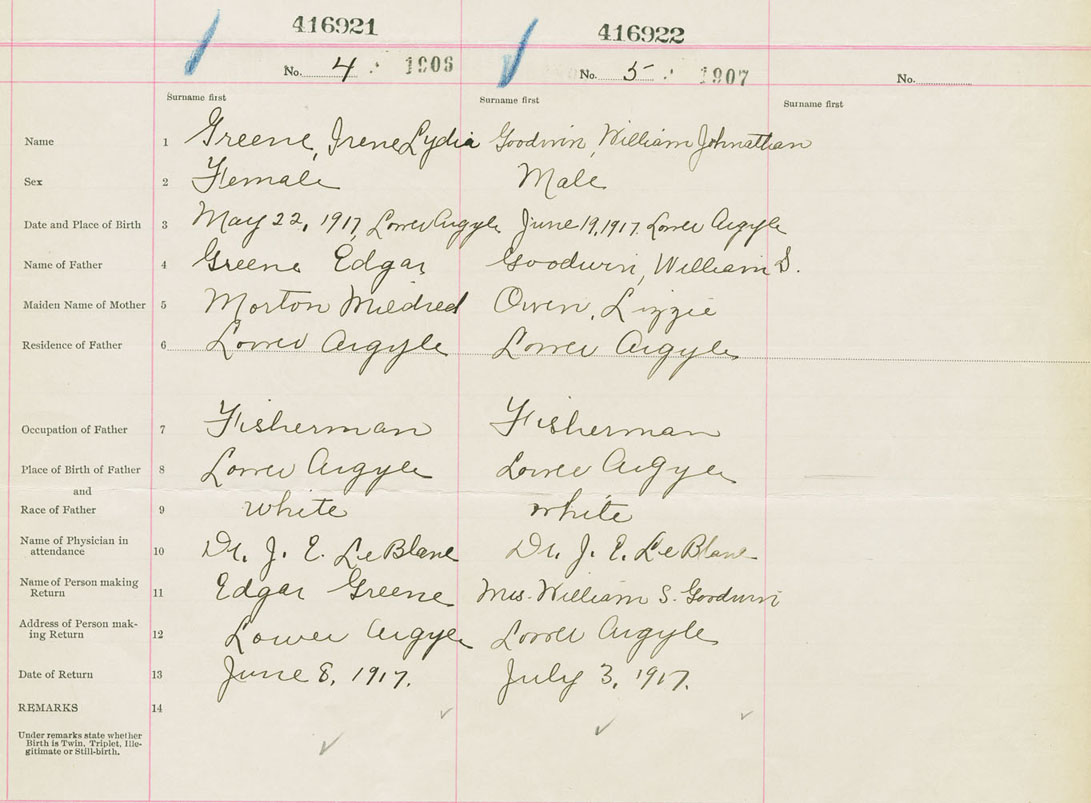 416921 416922
No. 4 1906 No. 5 1907 No.
Surname first Surname first Surname first
Name 1 Greene, Irene Lydia Goodwin, William Johnathan
Sex 2 Female Male
Date and Place of Birth 3 May 22, 1917, Lower Argyle June 19, 1917. Lower Argyle
Name of Father 4 Greene Edgar Goodwin, William S.
Maiden Name of Mother 5 Morton Mildred Owen, Lizzie
Residence of Father 6 Lower Argyle Lower Argyle
Occupation of Father 7 Fisherman Fisherman
Place of Birth of Father 8 Lower Argyle Lower Argyle
and
Race of Father 9 white white
Name of Physician in
attendance 10 Dr. J. E. LeBlanc Dr. J. E. LeBlanc
Name of Person making
Return 11 Edgar Greene Mrs. William S. Goodwin
Address of Person mak-
ing Return 12 Lower Argyle Lower Argyle
Date of Return 13 June 8, 1917. July 3, 1917.
REMARKS 14
Under remarks state whether
Birth is Twin, Triplet, Ille-
gitimate or Still-birth.